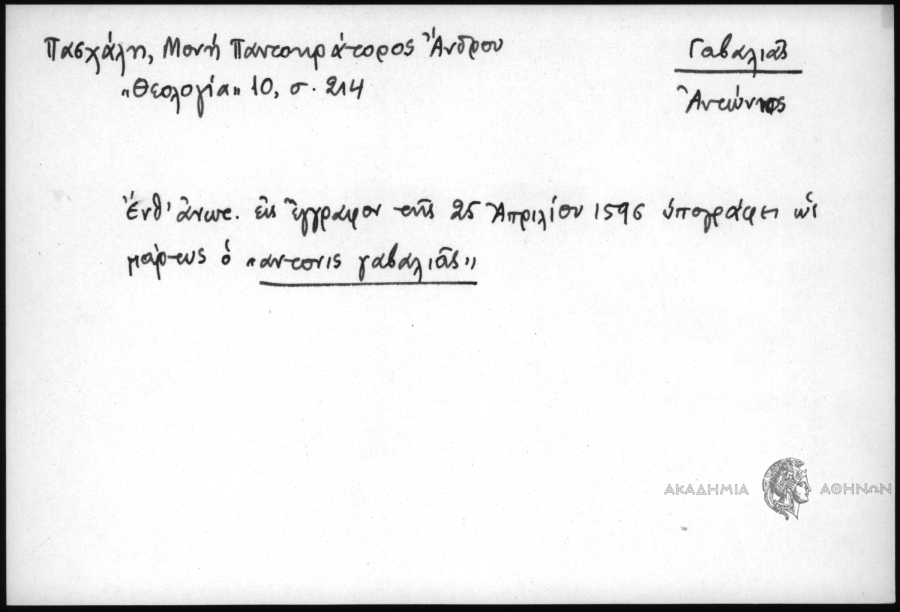 Πασχάλη, Μονή Παντοκράτορος Ἄνδρου
„Θεολογία" 10, σ. 214
Γαβαλιᾶς
Ἀντώνης
Ἐνθ' ἀνωτ. εἰς ἔγγραφον τῆς 25 Ἀπριλίου 1596 ὑπογράφει ὡς
μάρτυς ὁ "αντονις γαβαλιᾶς"
ΑΚΑΔΗΜΙΑ ΑΘΗΝΩΝ